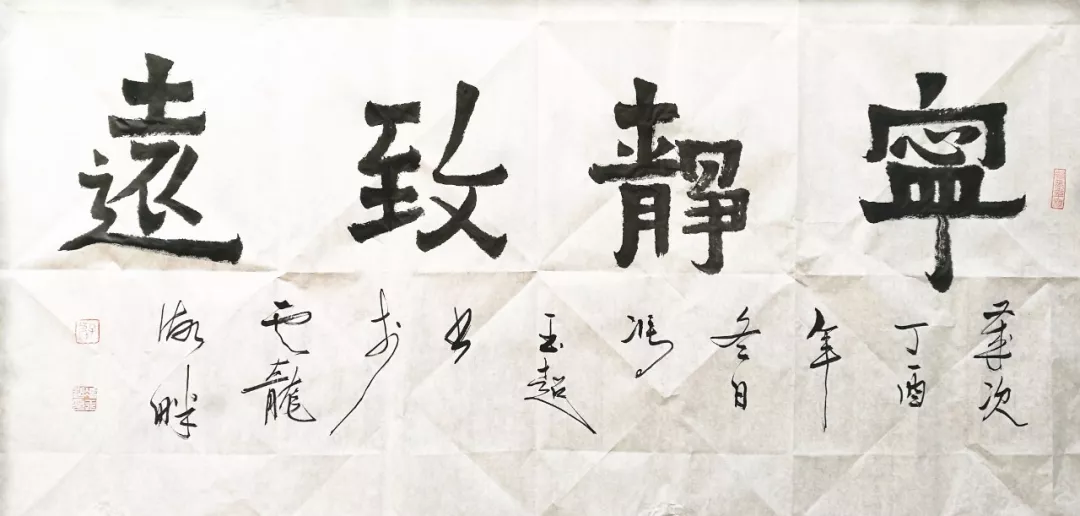 寧靜致遠
歲次丁酉年冬日馮玉超書於雲龍湖畔